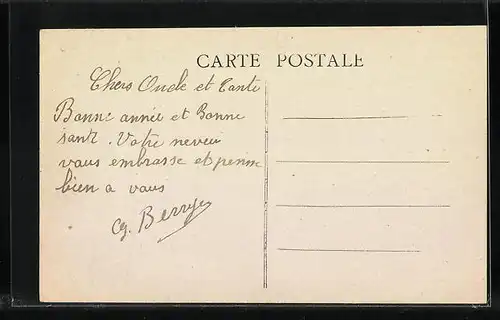 CARTE POSTALE
Chers Oncle et Tante
Bonne année et Bonne
santé. Votre neveu
vous embrasse et pense
bien a vous